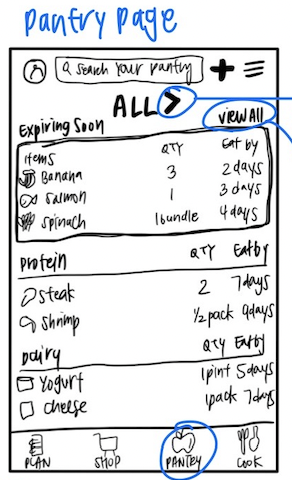 Pantry Page
Search Your Pantry
ALL >
Expiring Soon View All
Items QTY Eat by
Banana 3 2 days
Salmon 1 3 days
Spinach 1 bundle 4 days
Protein QTY Eat by
Steak 2 7 days
Shrimp 1/2 pack 9 days
Dairy QTY Eat by
Yogurt 1 pint 5 days
Cheese 1 pack 7 days
PLAN SHOP PANTRY COOK